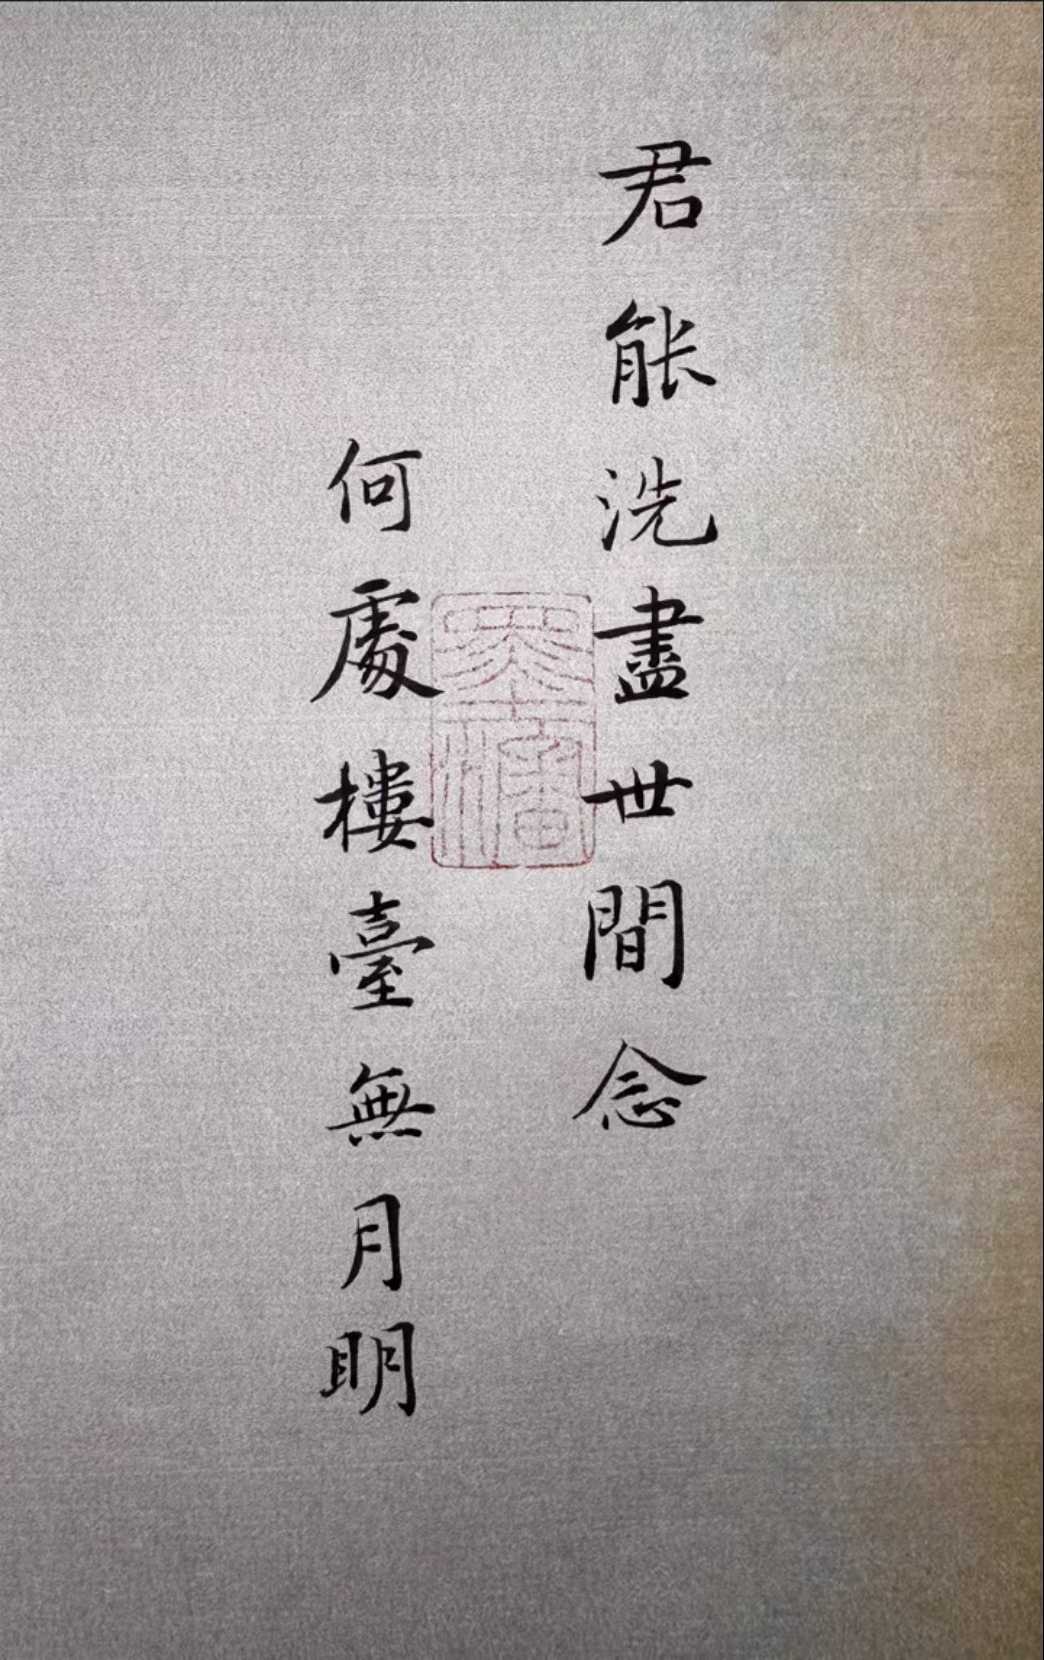 君能洗盡世間念
何處樓臺無月明